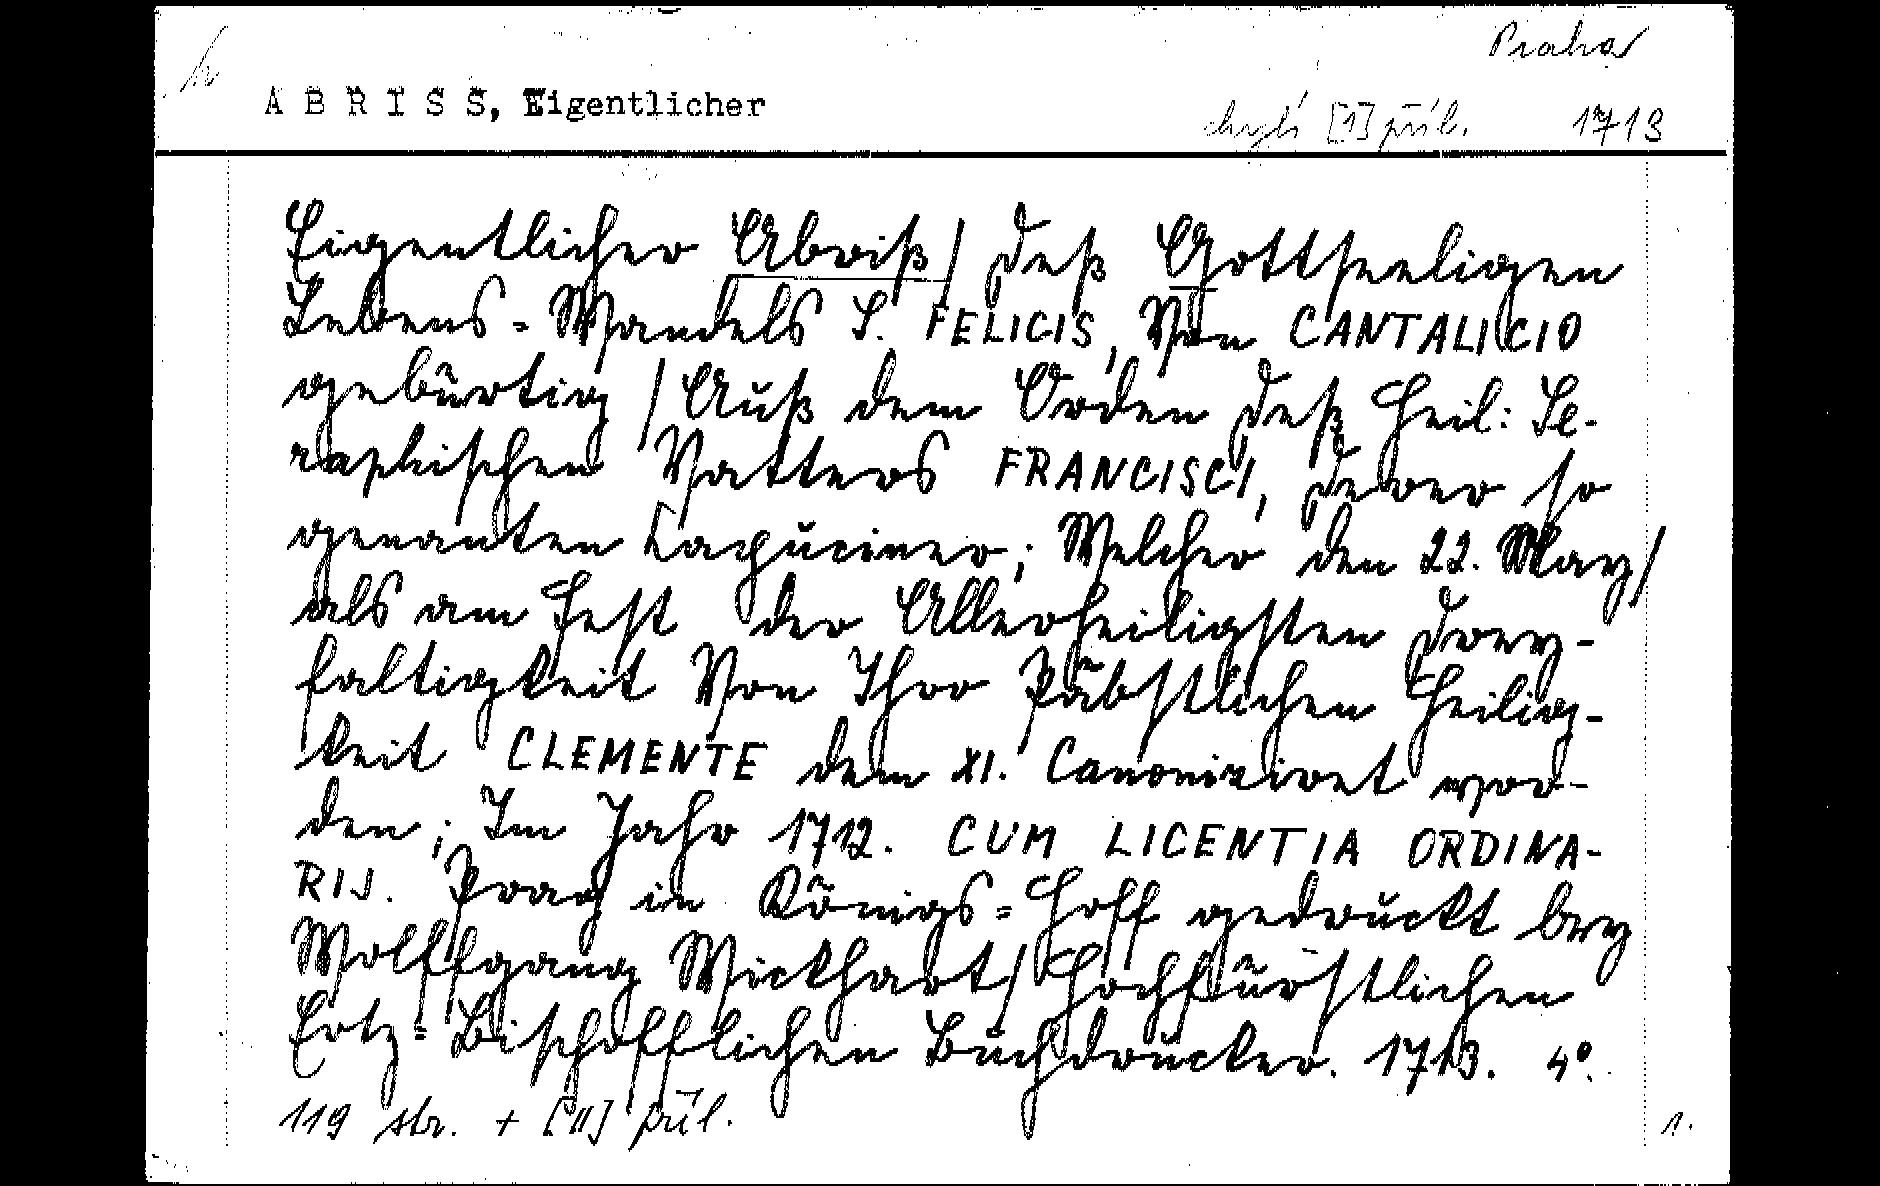 Praha
A B R I S S, Eigentlicher
chybí [1] příl. 1713
Eigentlicher Abriß / deß Gottseeligen
Lebens-Wandels S. FELICIS, Von CANTALICIO
gebürtig / Auß dem Orden deß Heil: Se-
raphischen Vatters FRANCISCI, derer so
genanten Capuciner; Welcher den 22. May /
als am Fest der Allerheiligsten Drey-
faltigkeit Von Ihro Päbstlichen Heilig-
keit CLEMENTE dem XI. Canoniziret wor-
den; Im Jahr 1712. CUM LICENTIA ORDINA-
RIJ. Prag in Königs-Hoff gedruckt bey
Wolffgang Wickhart / Hochfürstlichen
Ertz-Bischöfflichen Buchdrucker. 1713. 4°.
119 str. + [II] příl.
1.